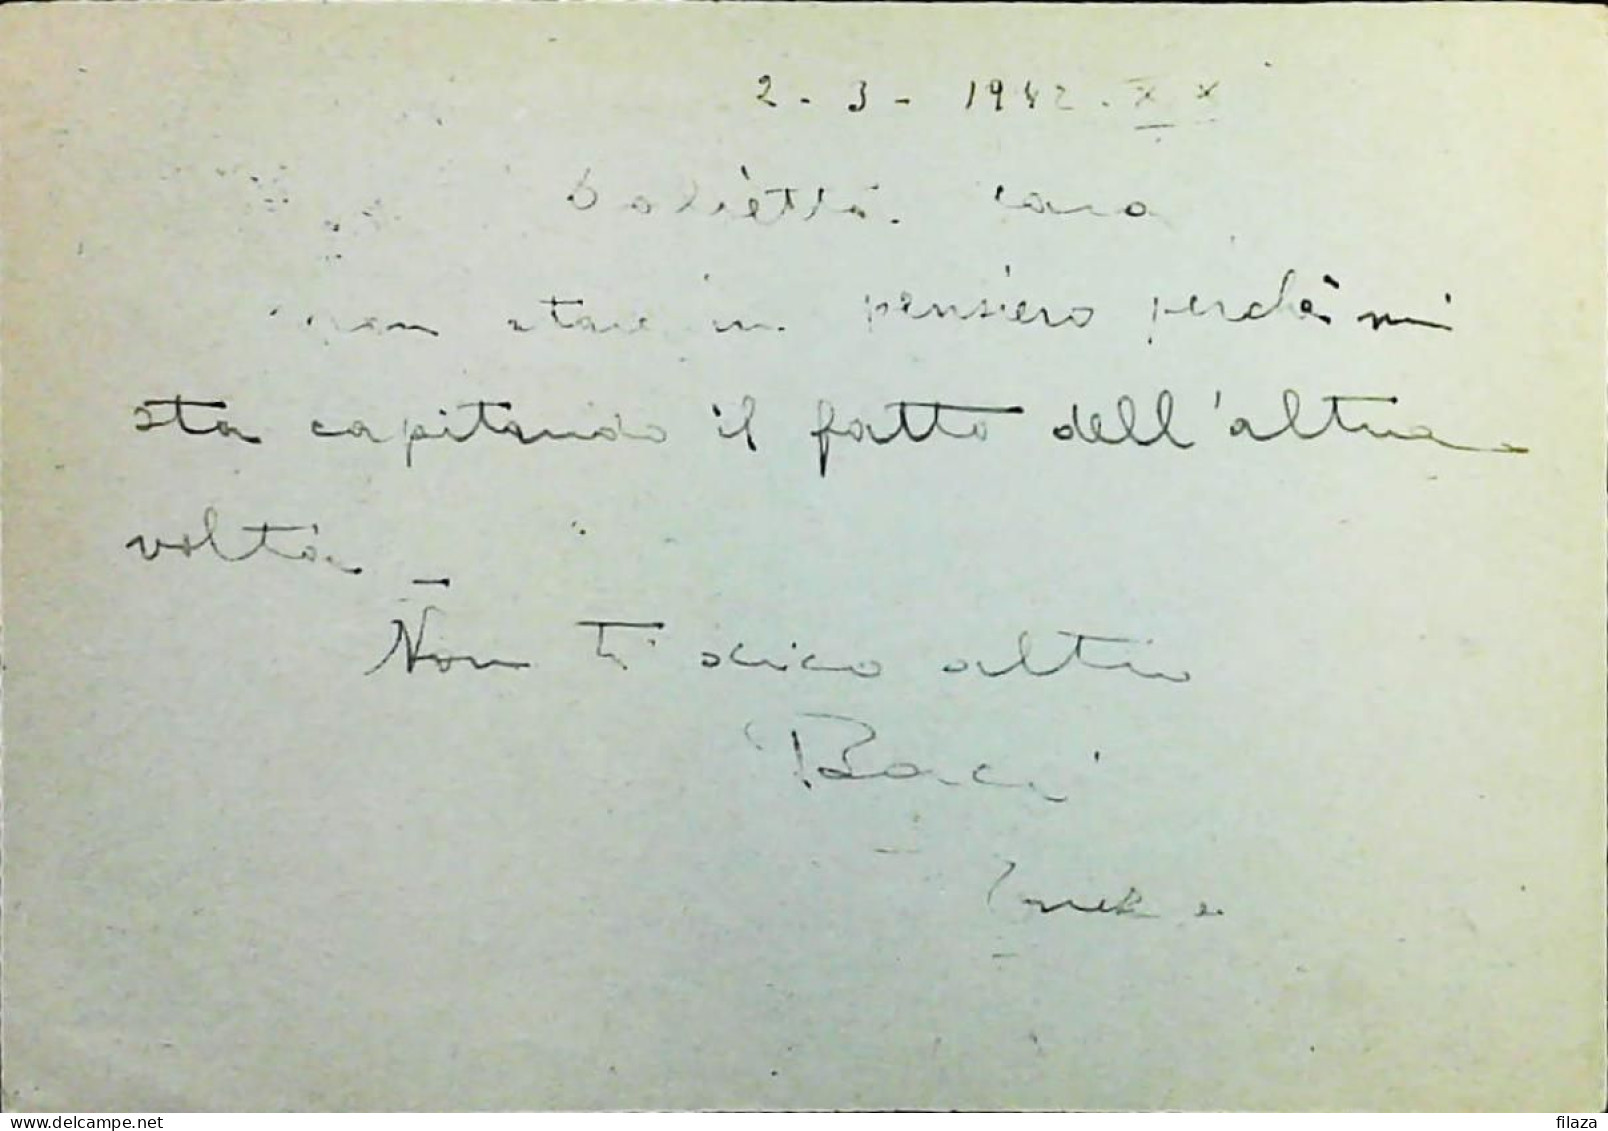 2 - 3 - 1942. XX
cara
non stare in pensiero perchè mi
sta capitando il fatto dell'altra
volta _
Non ti dico altro
Baci
delcampe.net
filaza